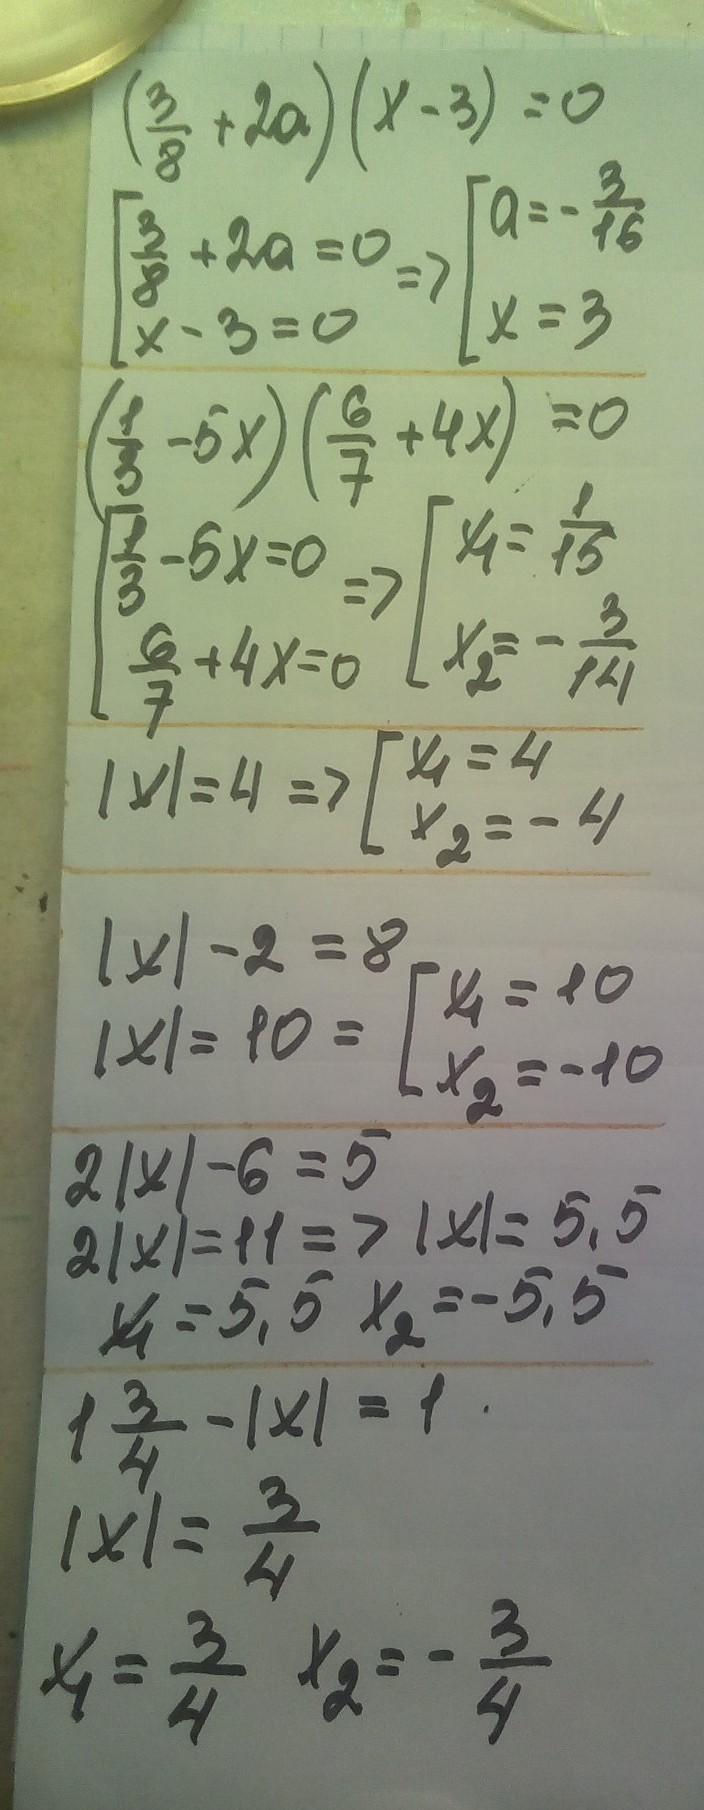 (3/8 + 2a)(x - 3) = 0
[3/8 + 2a = 0 => [a = -3/16
x - 3 = 0 x = 3
(1/3 - 5x)(6/7 + 4x) = 0
[1/3 - 5x = 0 => [x₁ = 1/15
6/7 + 4x = 0 x₂ = -3/14
|x| = 4 => [x₁ = 4
x₂ = -4
|x| - 2 = 8
|x| = 10 = [x₁ = 10
x₂ = -10
2|x| - 6 = 5
2|x| = 11 => |x| = 5,5
x₁ = 5,5 x₂ = -5,5
1 3/4 - |x| = 1
|x| = 3/4
x₁ = 3/4 x₂ = -3/4